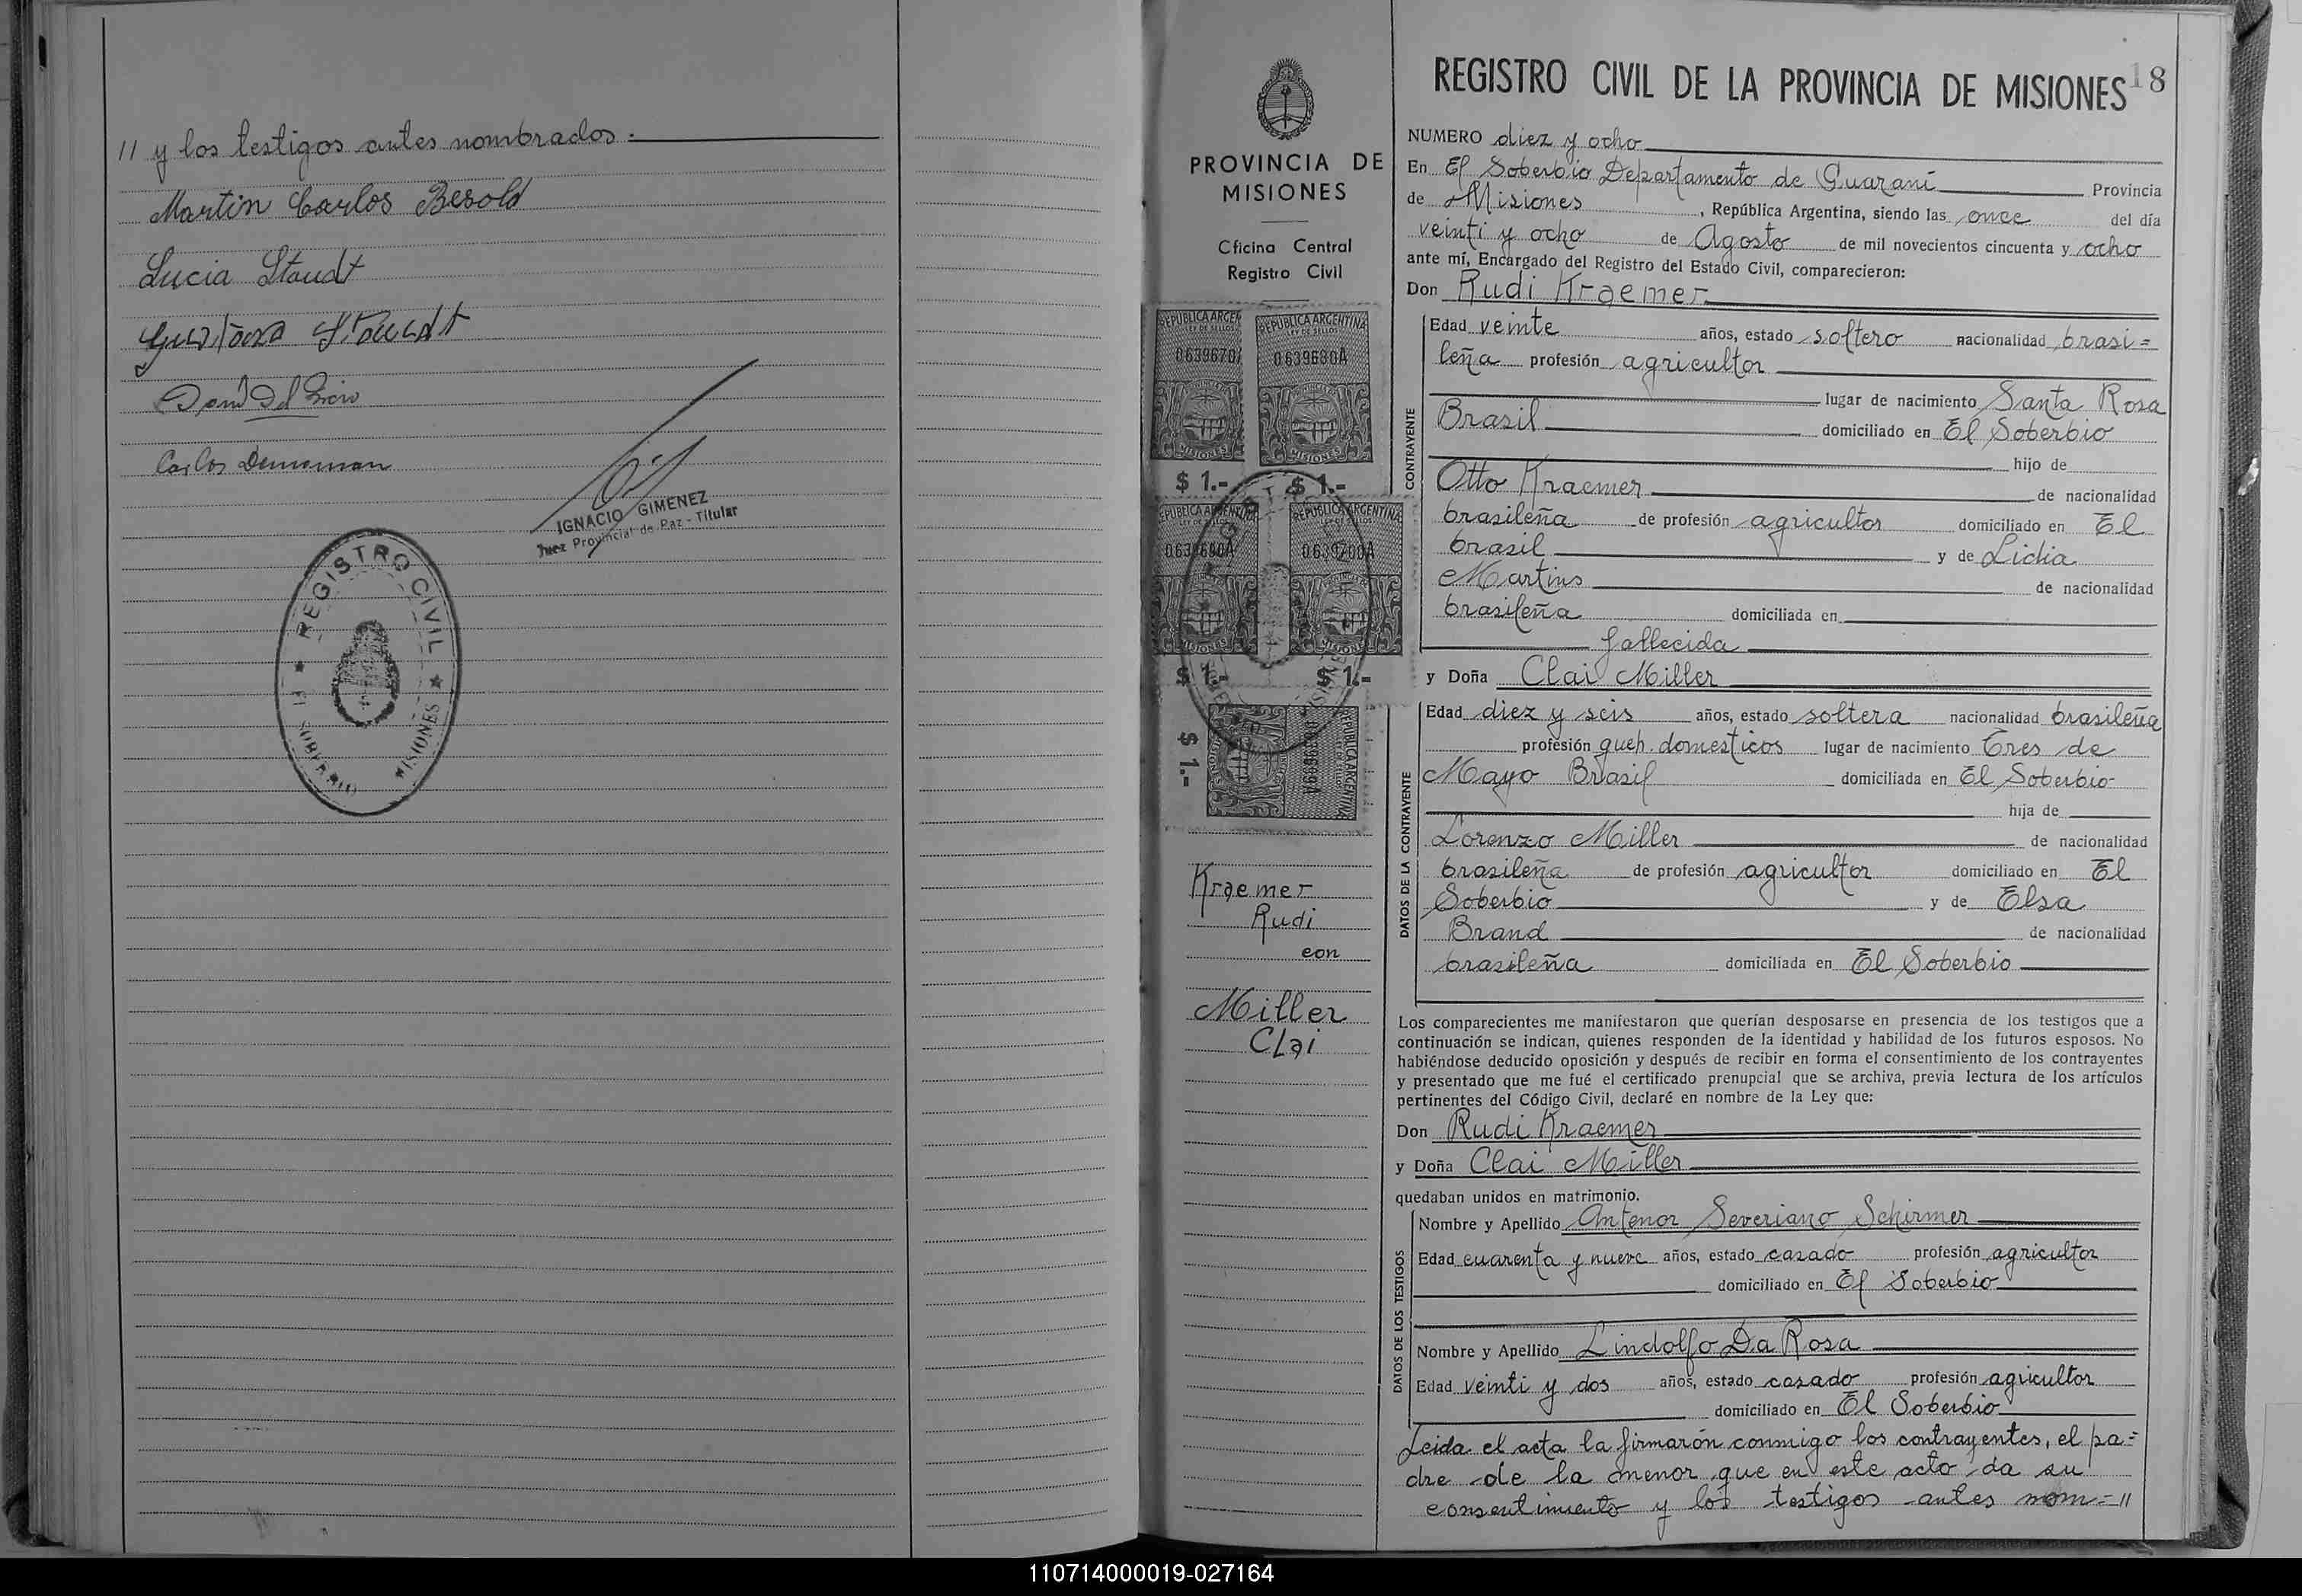 // y los testigos antes nombrados.
Martin Carlos Besold
Lucia Staudt
Gustavo Staudt
Carlos
IGNACIO GIMENEZ
Juez Provincial de Paz - Titular
REGISTRO CIVIL
EL SOBERBIO MISIONES
PROVINCIA DE
MISIONES
Oficina Central
Registro Civil
REPUBLICA ARGENTINA
LEY DE SELLOS
0639670A
MISIONES
$ 1.-
REPUBLICA ARGENTINA
LEY DE SELLOS
0639680A
MISIONES
$ 1.-
REPUBLICA ARGENTINA
MISIONES
$ 1.-
REPUBLICA ARGENTINA
0639700A
MISIONES
$ 1.-
REPUBLICA ARGENTINA
MISIONES
$ 1.-
Kraemer
Rudi
con
Miller
Clai
REGISTRO CIVIL DE LA PROVINCIA DE MISIONES 18
NUMERO diez y ocho
En El Soberbio Departamento de Guaraní Provincia
de Misiones, República Argentina, siendo las once del día
veinti y ocho de Agosto de mil novecientos cincuenta y ocho
ante mí, Encargado del Registro del Estado Civil, comparecieron:
Don Rudi Kraemer
CONTRAYENTE
Edad veinte años, estado soltero nacionalidad brasi=
leña profesión agricultor
lugar de nacimiento Santa Rosa
Brasil domiciliado en El Soberbio
hijo de
Otto Kraemer de nacionalidad
brasileña de profesión agricultor domiciliado en El
brasil y de Lidia
Martins de nacionalidad
brasileña domiciliada en
fallecida
y Doña Clai Miller
DATOS DE LA CONTRAYENTE
Edad diez y seis años, estado soltera nacionalidad brasileña
profesión queh. domesticos lugar de nacimiento Tres de
Mayo Brasil domiciliada en El Soberbio
hija de
Lorenzo Miller de nacionalidad
brasileña de profesión agricultor domiciliado en El
Soberbio y de Elsa
Brand de nacionalidad
brasileña domiciliada en El Soberbio
Los comparecientes me manifestaron que querían desposarse en presencia de los testigos que a
continuación se indican, quienes responden de la identidad y habilidad de los futuros esposos. No
habiéndose deducido oposición y después de recibir en forma el consentimiento de los contrayentes
y presentado que me fué el certificado prenupcial que se archiva, previa lectura de los artículos
pertinentes del Código Civil, declaré en nombre de la Ley que:
Don Rudi Kraemer
y Doña Clai Miller
quedaban unidos en matrimonio.
DATOS DE LOS TESTIGOS
Nombre y Apellido Antenor Severiano Schirmer
Edad cuarenta y nueve años, estado casado profesión agricultor
domiciliado en El Soberbio
Nombre y Apellido Lindolfo Da Rosa
Edad veinti y dos años, estado casado profesión agricultor
domiciliado en El Soberbio
Leida el acta la firmarón conmigo los contrayentes, el pa=
dre de la menor que en este acto da su
consentimiento y los testigos antes nom=//
110714000019-027164